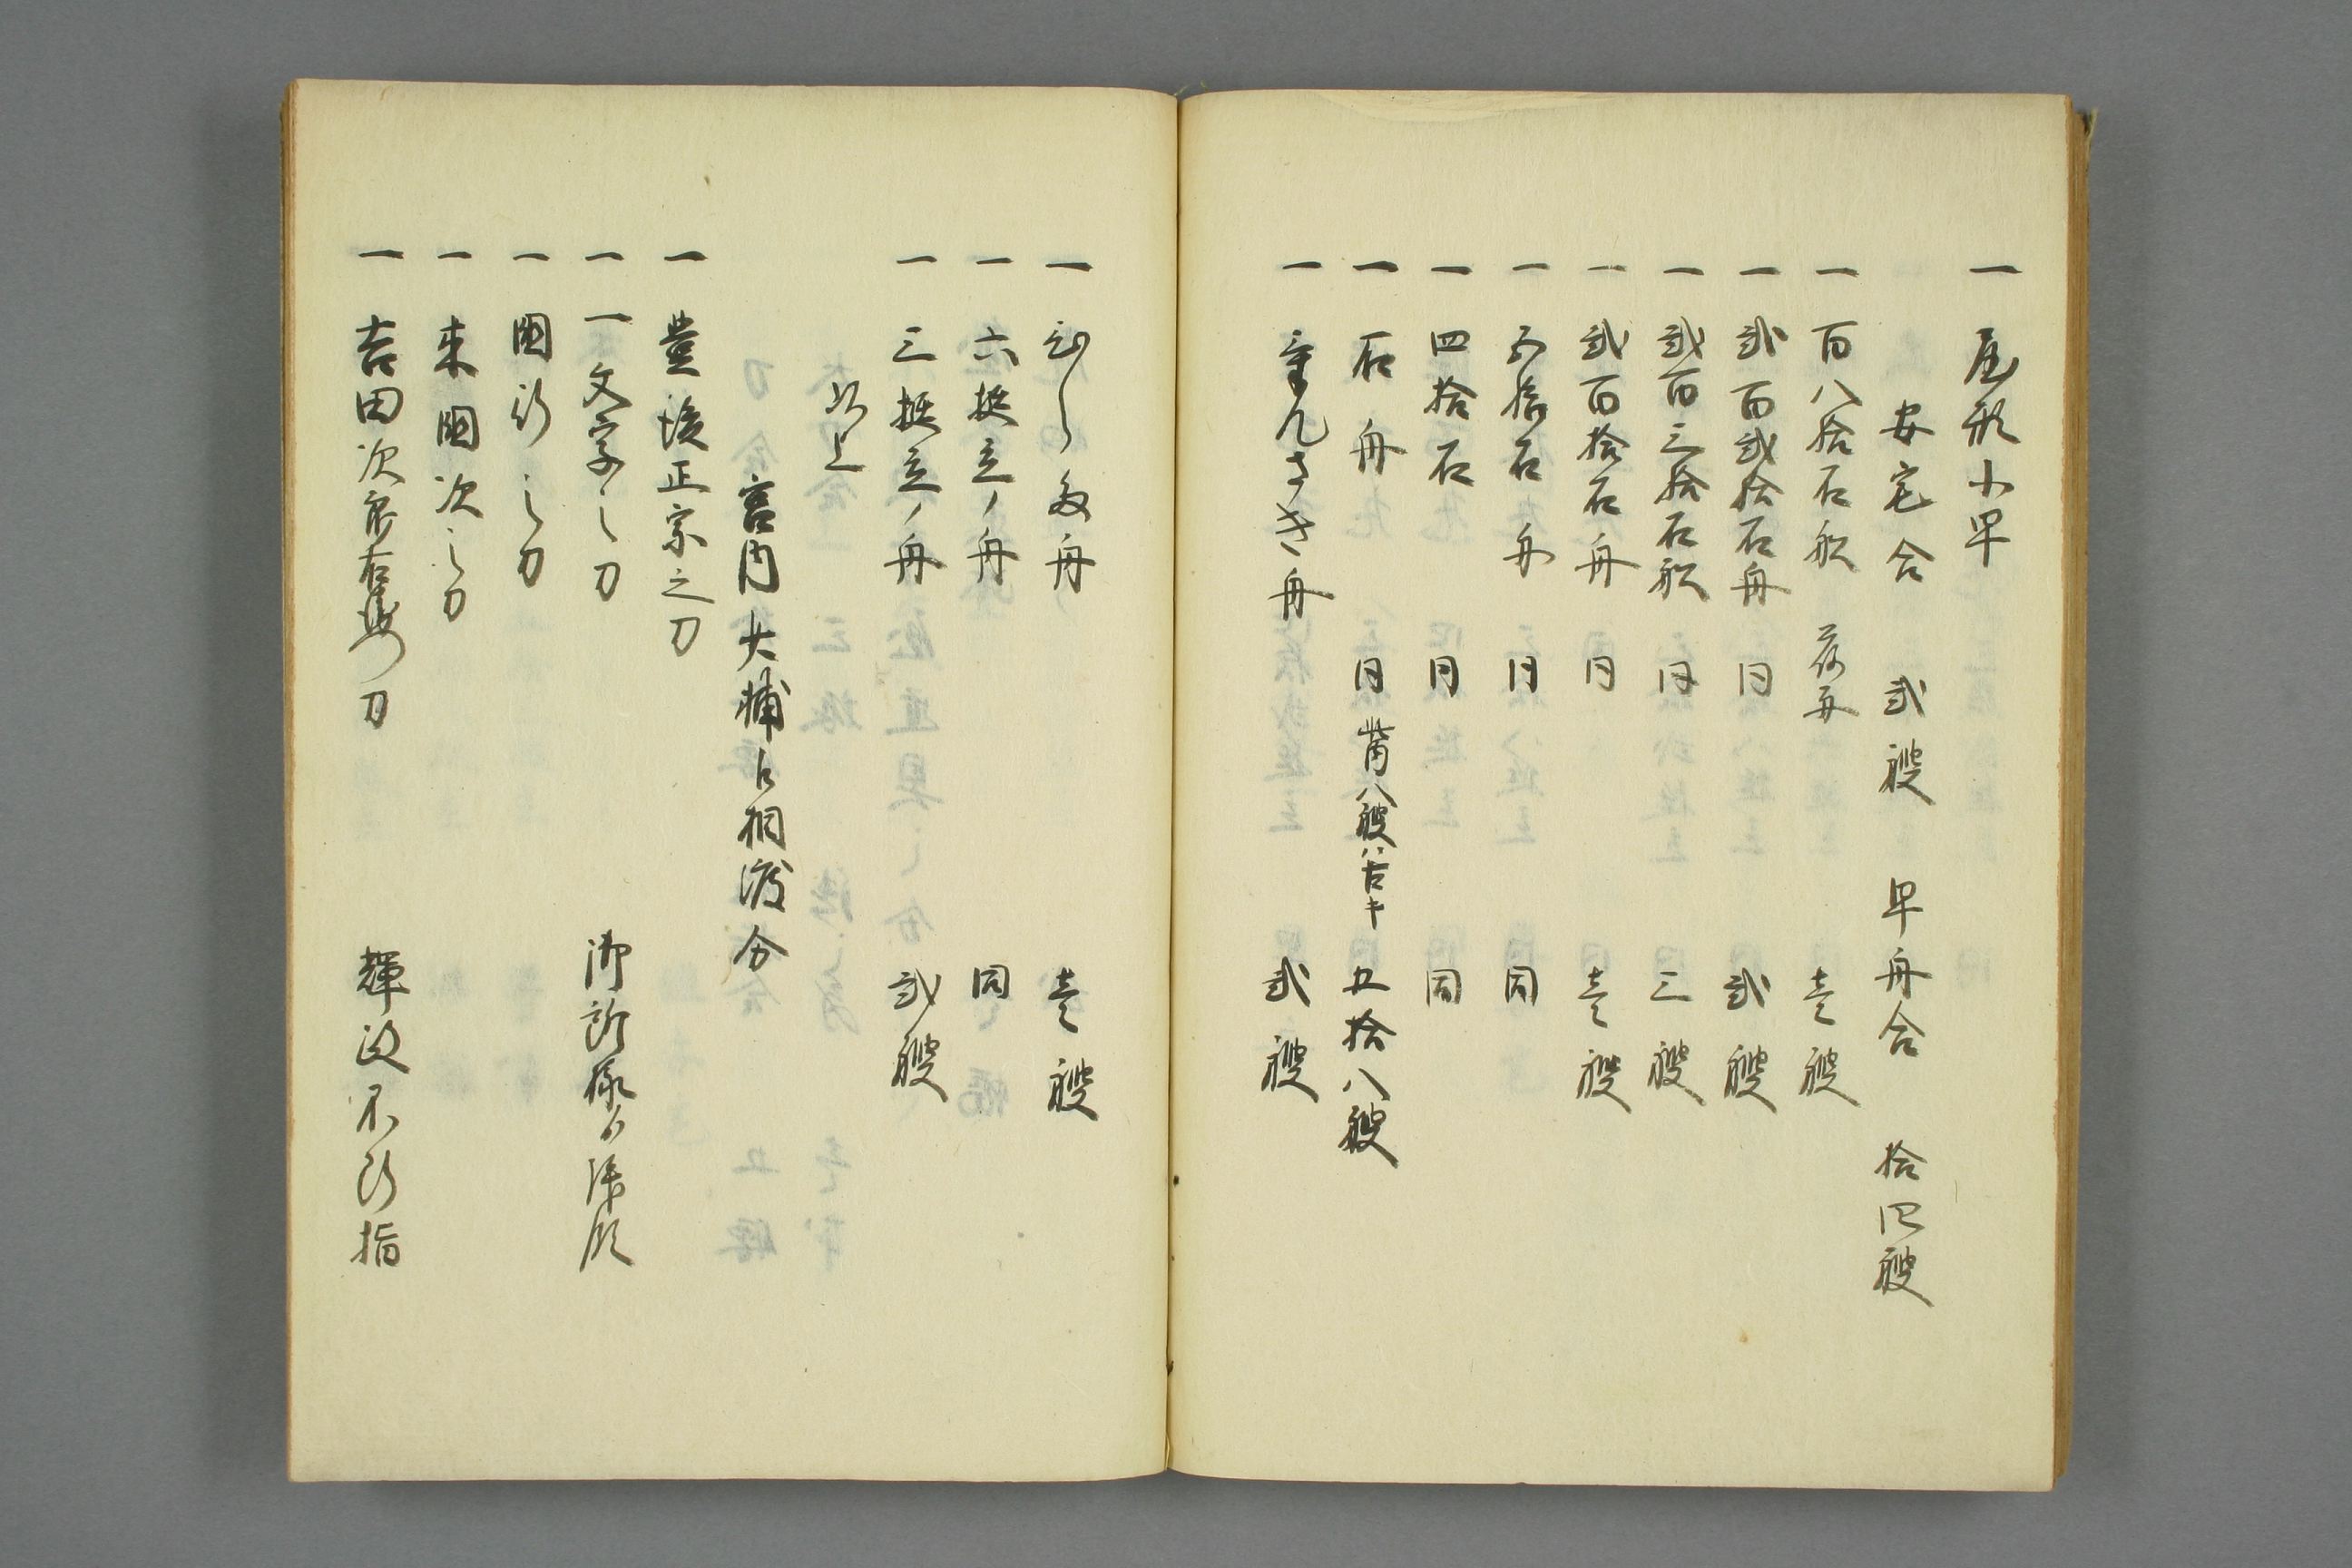 一 屋形小早
安宅合 弐艘 早舟合 拾四艘
一 百八拾石船 荷舟 壱艘
一 弐百弐拾石舟 同 弐艘
一 弐百三拾石船 同 三艘
一 弐百拾石舟 同 壱艘
一 五拾石舟 同 同
一 四拾石 同 同
一 石舟 同 八艘ハ古キ 五拾八艘
一 さき舟 弐艘
一 舟 壱艘
一 六挺立ノ舟 同
一 三挺立ノ舟 弐艘
以上
宮内大輔ニ相渡分
一 豊後正宗之刀
一 一文字之刀 御所様ゟ拝領
一 国行之刀
一 来国次之刀
一 吉田次郎右衛門刀 輝政不断指